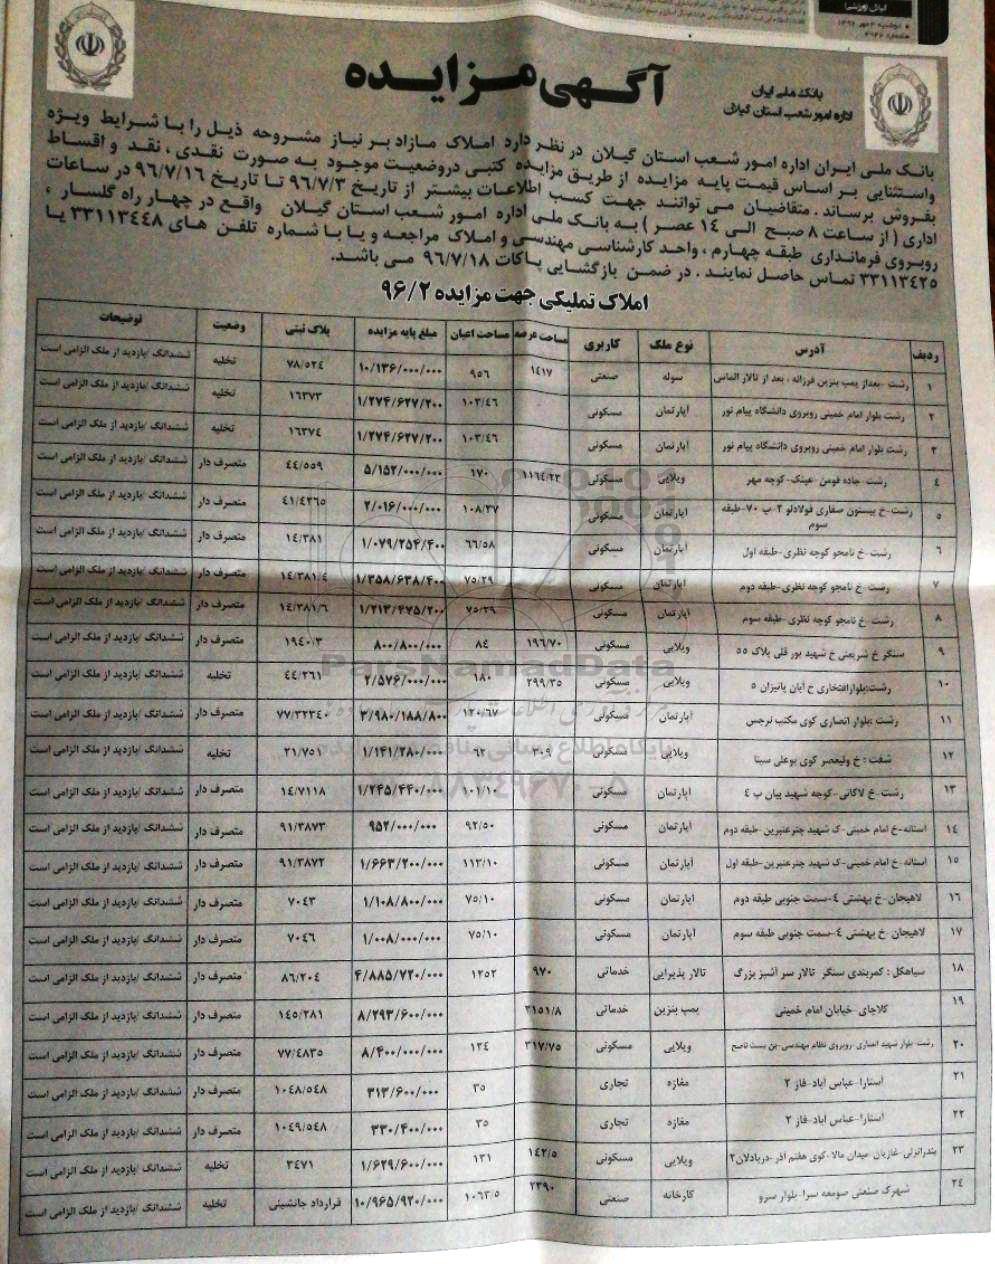 گیلان (ورزشی)
دوشنبه ۳ مهر ۱۳۹۶
آگهی مزایده
بانک ملی ایران
اداره امور شعب استان گیلان
بانک ملی ایران اداره امور شعب استان گیلان در نظر دارد املاک مازاد بر نیاز مشروحه ذیل را با شرایط ویژه
واستثنایی بر اساس قیمت پایه مزایده از طریق مزایده کتبی دروضعیت موجود به صورت نقدی ، نقد و اقساط
بفروش برساند . متقاضیان می توانند جهت کسب اطلاعات بیشتر از تاریخ ۹۶/۷/۳ تا تاریخ ۹۶/۷/۱۶ در ساعات
اداری ( از ساعت ۸ صبح الی ۱۴ عصر ) به بانک ملی اداره امور شعب استان گیلان واقع در چهار راه گلسار ،
روبروی فرمانداری طبقه چهارم ، واحد کارشناسی مهندسی و املاک مراجعه و یا با شماره تلفن های ۳۳۱۱۳۴۴۸ یا
۳۳۱۱۳۴۲۵ تماس حاصل نمایند . در ضمن بازگشایی پاکات ۹۶/۷/۱۸ می باشد.
املاک تملیکی جهت مزایده ۹۶/۲
ردیف آدرس نوع ملک کاربری مساحت عرصه مساحت اعیان مبلغ پایه مزایده پلاک ثبتی وضعیت توضیحات
۱ رشت -بعداز پمپ بنزین فرزانه ، بعد از تالار الماس سوله صنعتی ۱۴۱۷ ۹۵۶ ۱۰/۱۳۶/۰۰۰/۰۰۰ ۷۸/۵۲۴ تخلیه ششدانگ /بازدید از ملک الزامی است
۲ رشت بلوار امام خمینی روبروی دانشگاه پیام نور آپارتمان مسکونی ۱۰۳/۴۶ ۱/۲۷۴/۶۲۷/۲۰۰ ۱۶۳۷۳ تخلیه ششدانگ /بازدید از ملک الزامی است
۳ رشت بلوار امام خمینی روبروی دانشگاه پیام نور آپارتمان مسکونی ۱۰۳/۴۶ ۱/۲۷۴/۶۲۷/۲۰۰ ۱۶۳۷۴ تخلیه ششدانگ /بازدید از ملک الزامی است
۴ رشت جاده فومن -عینک-کوچه مهر ویلایی مسکونی ۱۱۶۴/۲۳ ۱۷۰ ۵/۱۵۲/۰۰۰/۰۰۰ ۴۴/۵۵۹ متصرف دار ششدانگ /بازدید از ملک الزامی است
۵ رشت-خ بیستون صفاری فولادلو ۲-پ ۷۰-طبقه سوم آپارتمان مسکونی ۱۰۸/۳۷ ۲/۰۱۶/۰۰۰/۰۰۰ ۴۱/۴۲۶۵ متصرف دار ششدانگ /بازدید از ملک الزامی است
۶ رشت-خ نامجو کوچه نظری-طبقه اول آپارتمان مسکونی ۶۶/۵۸ ۱/۰۷۹/۲۵۴/۴۰۰ ۱۴/۳۸۱ متصرف دار ششدانگ /بازدید از ملک الزامی است
۷ رشت -خ نامجو کوچه نظری-طبقه دوم آپارتمان مسکونی ۷۵/۲۹ ۱/۳۵۸/۶۳۸/۴۰۰ ۱۴/۳۸۱.۴ متصرف دار ششدانگ /بازدید از ملک الزامی است
۸ رشت -خ نامجو کوچه نظری-طبقه سوم آپارتمان مسکونی ۷۵/۲۹ ۱/۲۱۳/۴۷۵/۲۰۰ ۱۴/۳۸۱/۶ متصرف دار ششدانگ /بازدید از ملک الزامی است
۹ سنگر خ شریعتی خ شهید پور قلی پلاک ۵۵ ویلایی مسکونی ۱۹۶/۷۰ ۸۴ ۸۰۰/۸۰۰/۰۰۰ ۱۹۴۰/۳ متصرف دار ششدانگ /بازدید از ملک الزامی است
۱۰ رشت:بلوارافتخاری خ آبان پانیزان ۵ ویلایی مسکونی ۲۹۹/۳۵ ۱۸۰ ۲/۵۷۶/۰۰۰/۰۰۰ ۴۴/۲۶۱ تخلیه ششدانگ /بازدید از ملک الزامی است
۱۱ رشت :بلوار انصاری کوی مکتب نرجس آپارتمان مسکونی ۱۲۰/۶۷ ۳/۹۸۰/۱۸۸/۸۰۰ ۷۷/۳۲۳۴۰ متصرف دار ششدانگ /بازدید از ملک الزامی است
۱۲ شفت : خ ولیعصر کوی بوعلی سینا ویلایی مسکونی ۳۰۹ ۶۲ ۱/۱۴۱/۲۸۰/۰۰۰ ۲۱/۷۵۱ تخلیه ششدانگ /بازدید از ملک الزامی است
۱۳ رشت-خ لاکانی-کوچه شهید بیان پ ۴ آپارتمان مسکونی ۱۰۱/۱۰ ۱/۲۴۵/۴۴۰/۰۰۰ ۱۴/۷۱۱۸ متصرف دار ششدانگ /بازدید از ملک الزامی است
۱۴ آستانه-خ امام خمینی-ک شهید چترعنبرین-طبقه دوم آپارتمان مسکونی ۹۲/۵۰ ۹۵۲/۰۰۰/۰۰۰ ۹۱/۳۸۷۳ متصرف دار ششدانگ /بازدید از ملک الزامی است
۱۵ آستانه-خ امام خمینی-ک شهید چترعنبرین-طبقه اول آپارتمان مسکونی ۱۱۲/۱۰ ۱/۶۶۳/۲۰۰/۰۰۰ ۹۱/۳۸۷۲ متصرف دار ششدانگ /بازدید از ملک الزامی است
۱۶ لاهیجان-خ بهشتی ۴-سمت جنوبی طبقه دوم آپارتمان مسکونی ۷۵/۱۰ ۱/۱۰۸/۸۰۰/۰۰۰ ۷۰۴۳ متصرف دار ششدانگ /بازدید از ملک الزامی است
۱۷ لاهیجان-خ بهشتی ۴-سمت جنوبی طبقه سوم آپارتمان مسکونی ۷۵/۱۰ ۱/۰۰۸/۰۰۰/۰۰۰ ۷۰۴۶ متصرف دار ششدانگ /بازدید از ملک الزامی است
۱۸ سیاهکل : کمربندی سنگر تالار سر آشپز بزرگ تالار پذیرایی خدماتی ۹۷۰ ۱۲۵۲ ۴/۸۸۵/۷۲۰/۰۰۰ ۸۶/۲۰۴ متصرف دار ششدانگ /بازدید از ملک الزامی است
۱۹ کلاچای-خیابان امام خمینی پمپ بنزین خدماتی ۳۱۵۱/۸ ۸/۲۹۳/۶۰۰/۰۰۰ ۱۴۵/۲۸۱ متصرف دار ششدانگ /بازدید از ملک الزامی است
۲۰ رشت- بلوار شهید انصاری-روبروی نظام مهندسی-بن بست ناصح ویلایی مسکونی ۳۱۷/۷۵ ۱۲۴ ۸/۴۰۰/۰۰۰/۰۰۰ ۷۷/۴۸۳۵ متصرف دار ششدانگ /بازدید از ملک الزامی است
۲۱ آستارا-عباس آباد-فاز ۲ مغازه تجاری ۳۵ ۳۱۳/۶۰۰/۰۰۰ ۱۰۴۸/۵۴۸ متصرف دار ششدانگ /بازدید از ملک الزامی است
۲۲ آستارا-عباس آباد-فاز ۲ مغازه تجاری ۳۵ ۳۳۰/۴۰۰/۰۰۰ ۱۰۴۹/۵۴۸ متصرف دار ششدانگ /بازدید از ملک الزامی است
۲۳ بندرانزلی-غازیان-میدان مالا-کوی هفتم آذر -دریادلان۲ ویلایی مسکونی ۱۴۲/۵ ۱۳۱ ۱/۶۲۹/۶۰۰/۰۰۰ ۳۴۷۱ تخلیه ششدانگ /بازدید از ملک الزامی است
۲۴ شهرک صنعتی صومعه سرا-بلوار سرو کارخانه صنعتی ۲۳۹۰ ۱۰۶۳/۵ ۱۰/۹۶۵/۹۲۰/۰۰۰ قرارداد جانشینی تخلیه ششدانگ /بازدید از ملک الزامی است
ParsNamadData